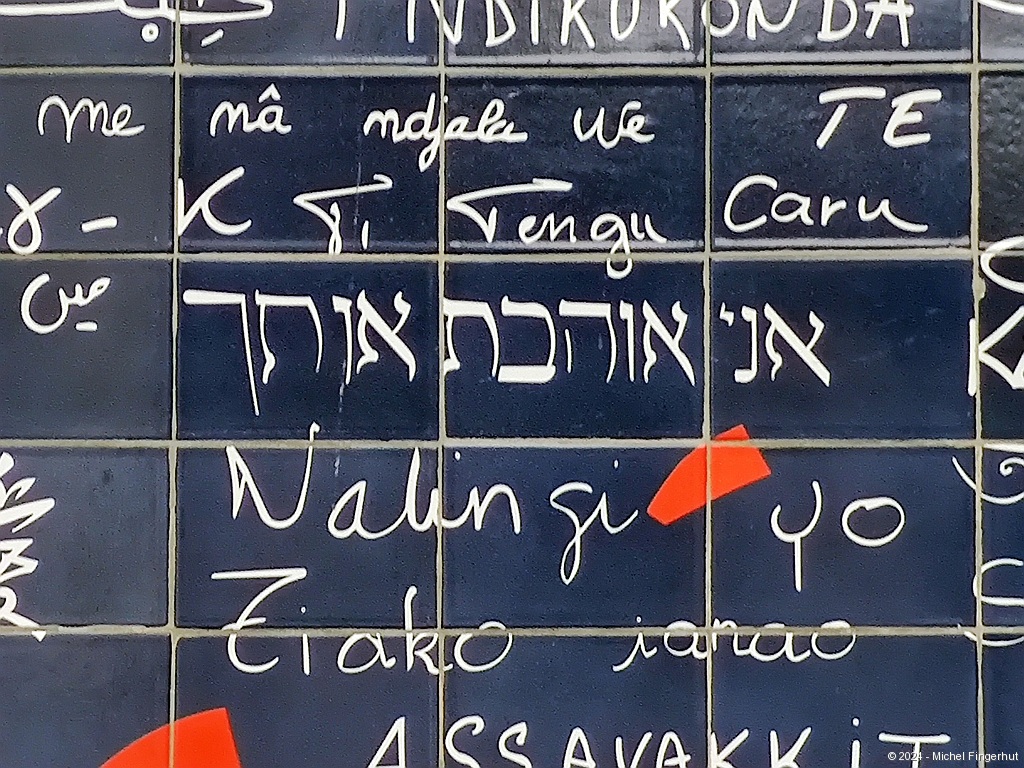 NDIKUKONDA
me mâ TE
Ti Tengu Caru
אני אוהבת אותך
Nalingi yo
Tiako ianao
ASSAVAKKiT
© 2024 - Michel Fingerhut